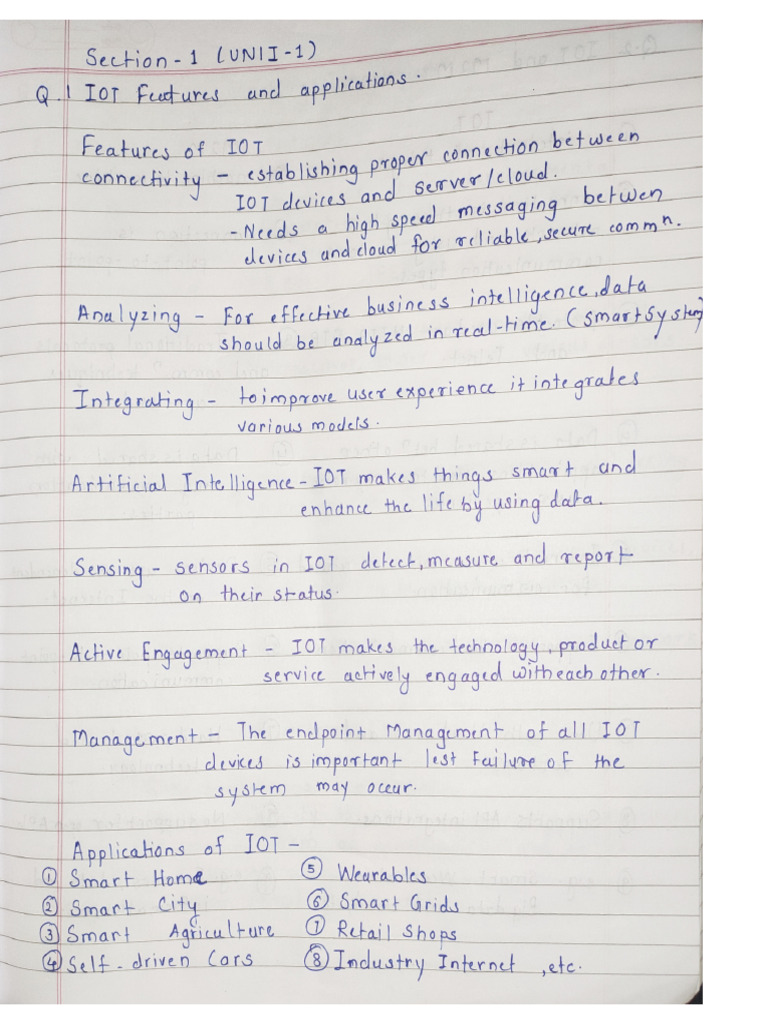 Section - 1 (UNII-1)
Q.1 IOT Features and applications.
Features of IOT
connectivity - establishing proper connection between
IOT devices and server/cloud.
- Needs a high speed messaging betwen
devices and cloud for reliable, secure commn.
Analyzing - For effective business intelligence, data
should be analyzed in real-time. (Smart System)
Integrating - to improve user experience it integrates
various models.
Artificial Intelligence - IOT makes things smart and
enhance the life by using data.
Sensing - sensors in IOT detect, measure and report
on their status.
Active Engagement - IOT makes the technology, product or
service actively engaged with each other.
Management - The endpoint Management of all IOT
devices is important lest Failure of the
system may occur.
Applications of IOT -
① Smart Home ⑤ Wearables
② Smart City ⑥ Smart Grids
③ Smart Agriculture ⑦ Retail Shops
④ Self-driven Cars ⑧ Industry Internet, etc.